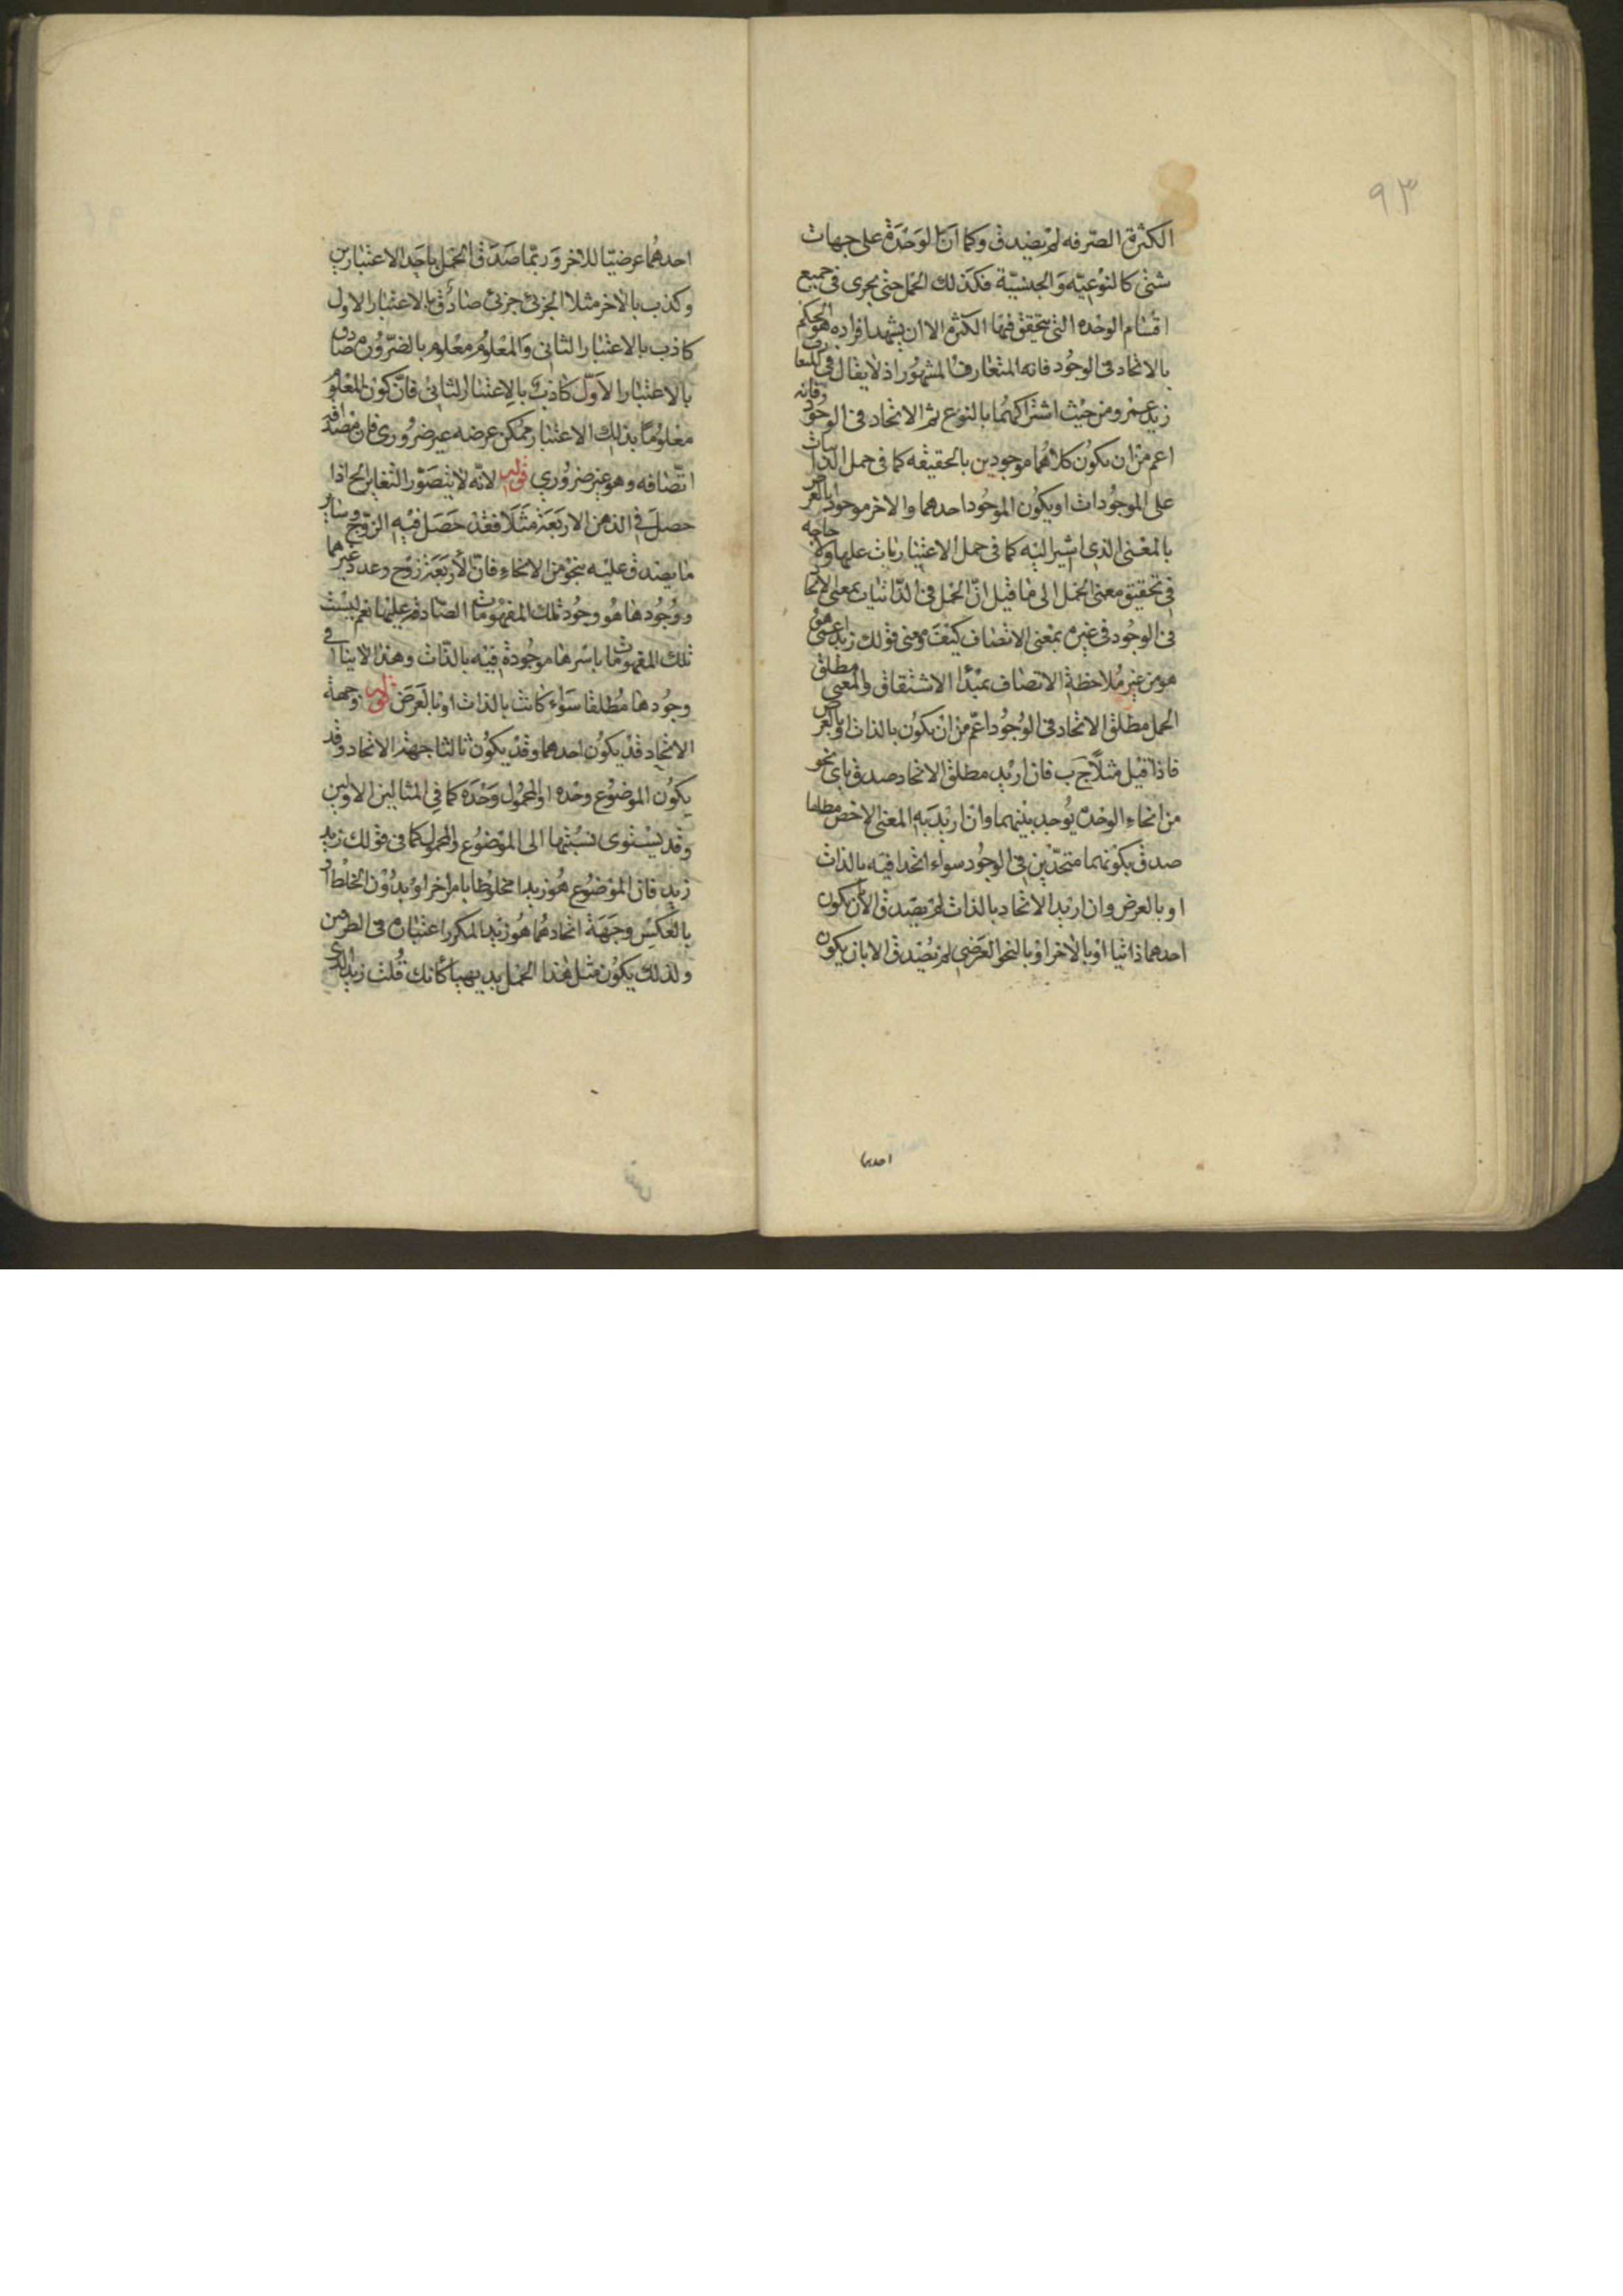 ٩٣
الكثرة الصرفه لم يصدق وكما ان الوحدة على جهات
شتى كالنوعيه والجنسية فكذلك الحمل حتى يجرى فى جميع
اقسام الوحده التى يتحقق فيها الكثرة الا ان يشهد افراده هو الحكم
بالاتحاد فى الوجود فانه المتعارف المشهور اذ لا يقال فى
زيد عمرو من حيث اشتراكهما بالنوع ثم الاتحاد فى الوجود
اعم من ان يكون كلاهما موجودين بالحقيقه كما فى حمل الذاتيات
على الموجودات او يكون الموجود احدهما والاخر موجود بالعرض
بالمعنى الذى اشير اليه كما فى حمل الاعتباريات عليها ولا حاجه
فى تحقيق معنى الحمل الى ما قيل ان الحمل فى الذاتيات بمعنى الاتحاد
فى الوجود فى غيره بمعنى الاتصاف كيف ومنى قولك زيد اعمى هو
هو من غير ملاحظة الاتصاف بمبدأ الاشتقاق والمعنى مطلق
الحمل مطلق الاتحاد فى الوجود اعم من ان يكون بالذات او بالعرض
فاذا قيل مثلا ج ب فان اريد مطلق الاتحاد صدق باى نحو
من انحاء الوحده يوجد بينهما وان اريد به المعنى الاخص مطلقا
صدق بكونهما متحدين فى الوجود سواء اتحدا فيه بالذات
او بالعرض وان اريد الاتحاد بالذات لم يصدق الا ان يكون
احدهما ذاتيا او بالاخر او بالنحو العرضى لم يصدق الا بان يكون
احدهما
احدهما عرضيا للاخر وربما صدق الحمل باحد الاعتبارين
وكذب بالاخر مثلا الجزئى جزئى صادق بالاعتبار الاول
كاذب بالاعتبار الثانى والمعلوم معلوم بالضرورة صادق
بالاعتبار الاول كاذب بالاعتبار الثانى فان كون المعلوم
معلوما بذلك الاعتبار ممكن عرضه غير ضرورى فان مصداقه
اتصافه وهو غير ضرورى قوله لانه لا يتصور التغاير الخ اذا
حصل فى الذهن الاربعة مثلا فقد حصل فيه الزوج وساير
ما يصدق عليه بنحو من الانحاء فان الاربعة زوج وعدد وغيرهما
ووجودها هو وجود تلك المفهومات الصادقة عليها نعم ليست
تلك المفهومات باسرها موجودة فيه بالذات وهذا لا ينافى
وجودها مطلقا سواء كانت بالذات او بالعرض قوله وجهة
الاتحاد قد يكون احدهما وقد يكون ثالثا جهة الاتحاد وقد
يكون الموضوع وحده او المحمول وحده كما فى المثالين الاولين
وقد يستوى نسبتها الى الموضوع والمحمول كما فى قولك زيد
زيد فان الموضوع هو زيد مخلوطا بامر اخر او بدون الخلط او
بالعكس وجهة اتحادهما هو زيد المكرر اعتباره فى الطرفين
ولذلك يكون مثل هذا الحمل بديهيا كانك قلت زيد الذى